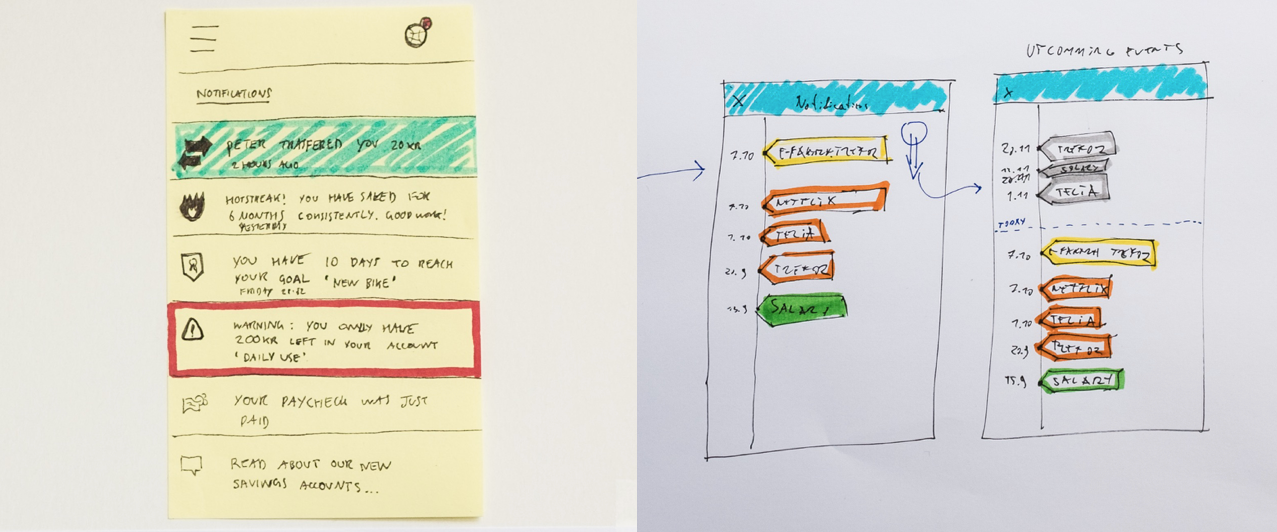 NOTIFICATIONS
PETER TRASFERED YOU 20KR
2 HOURS AGO
HOTSTREAK! YOU HAVE SAVED FOR
6 MONTHS CONSISTENTLY. GOOD WORK!
YESTERDAY
YOU HAVE 10 DAYS TO REACH
YOUR GOAL 'NEW BIKE'
FRIDAY
WARNING: YOU ONLY HAVE
200KR LEFT IN YOUR ACCOUNT
'DAILY USE'
YOUR PAYCHECK WAS JUST
PAID
READ ABOUT OUR NEW
SAVINGS ACCOUNTS...
X Notifications
7.10
NETFLIX
TELIA
SALARY
UPCOMMING EVENTS
X
SALARY
1.11 TELIA
TODAY
7.10
NETFLIX
TELIA
15.9 SALARY